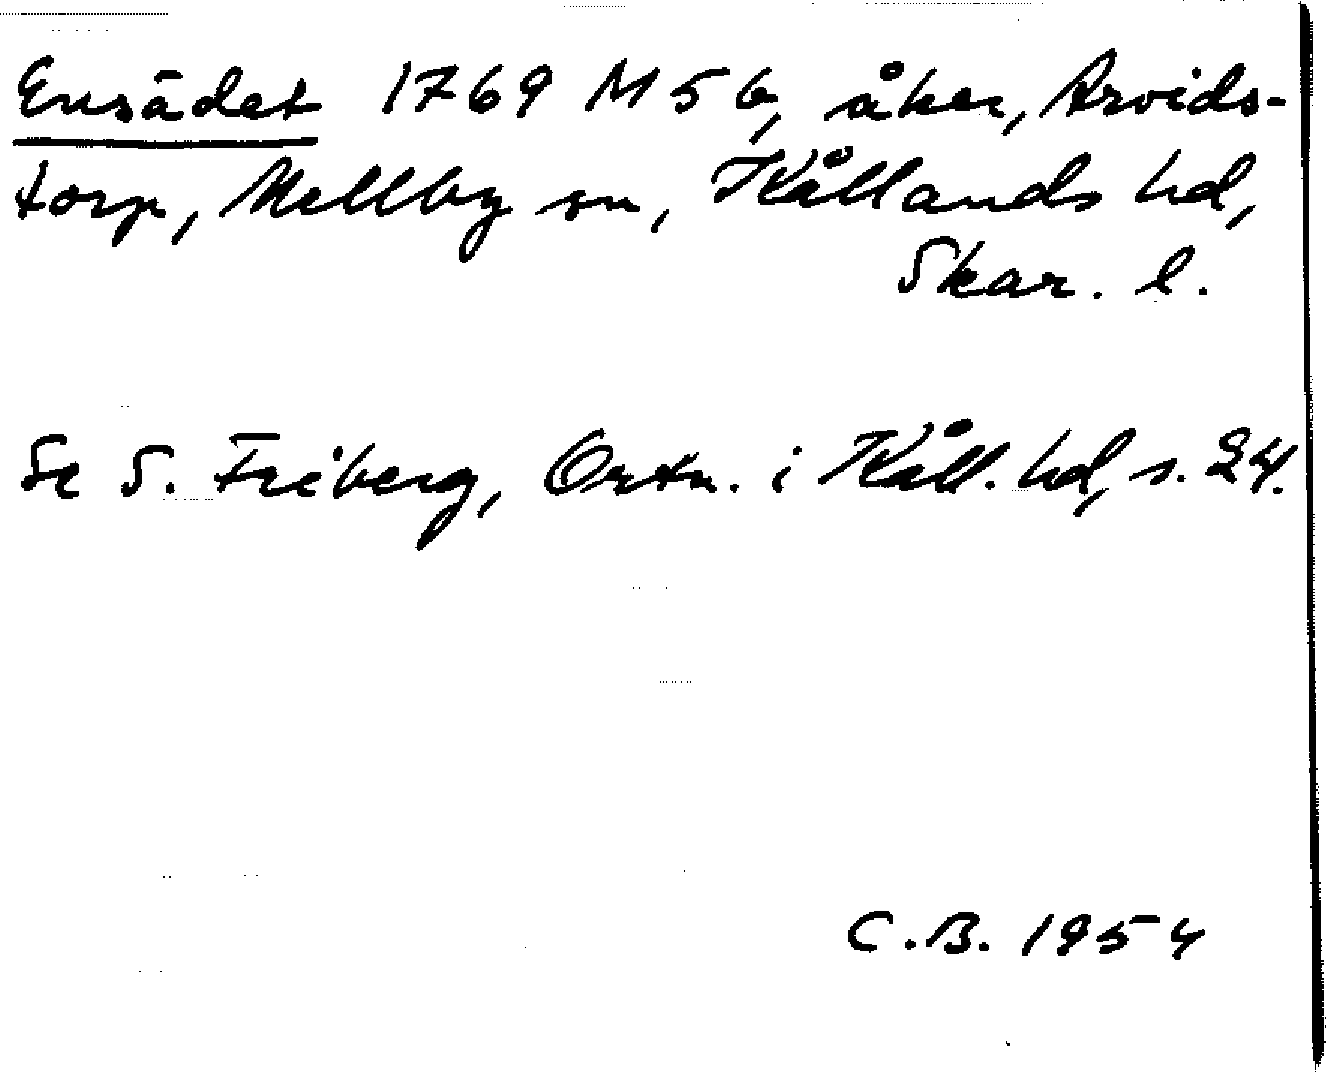 Ensädet 1769 M 56, åker, Arvids-
torp, Mellby sn, Kållands hd,
Skar. l.
Se S. Friberg, Ortn. i Kåll. hd, s. 24.
C.B. 1954